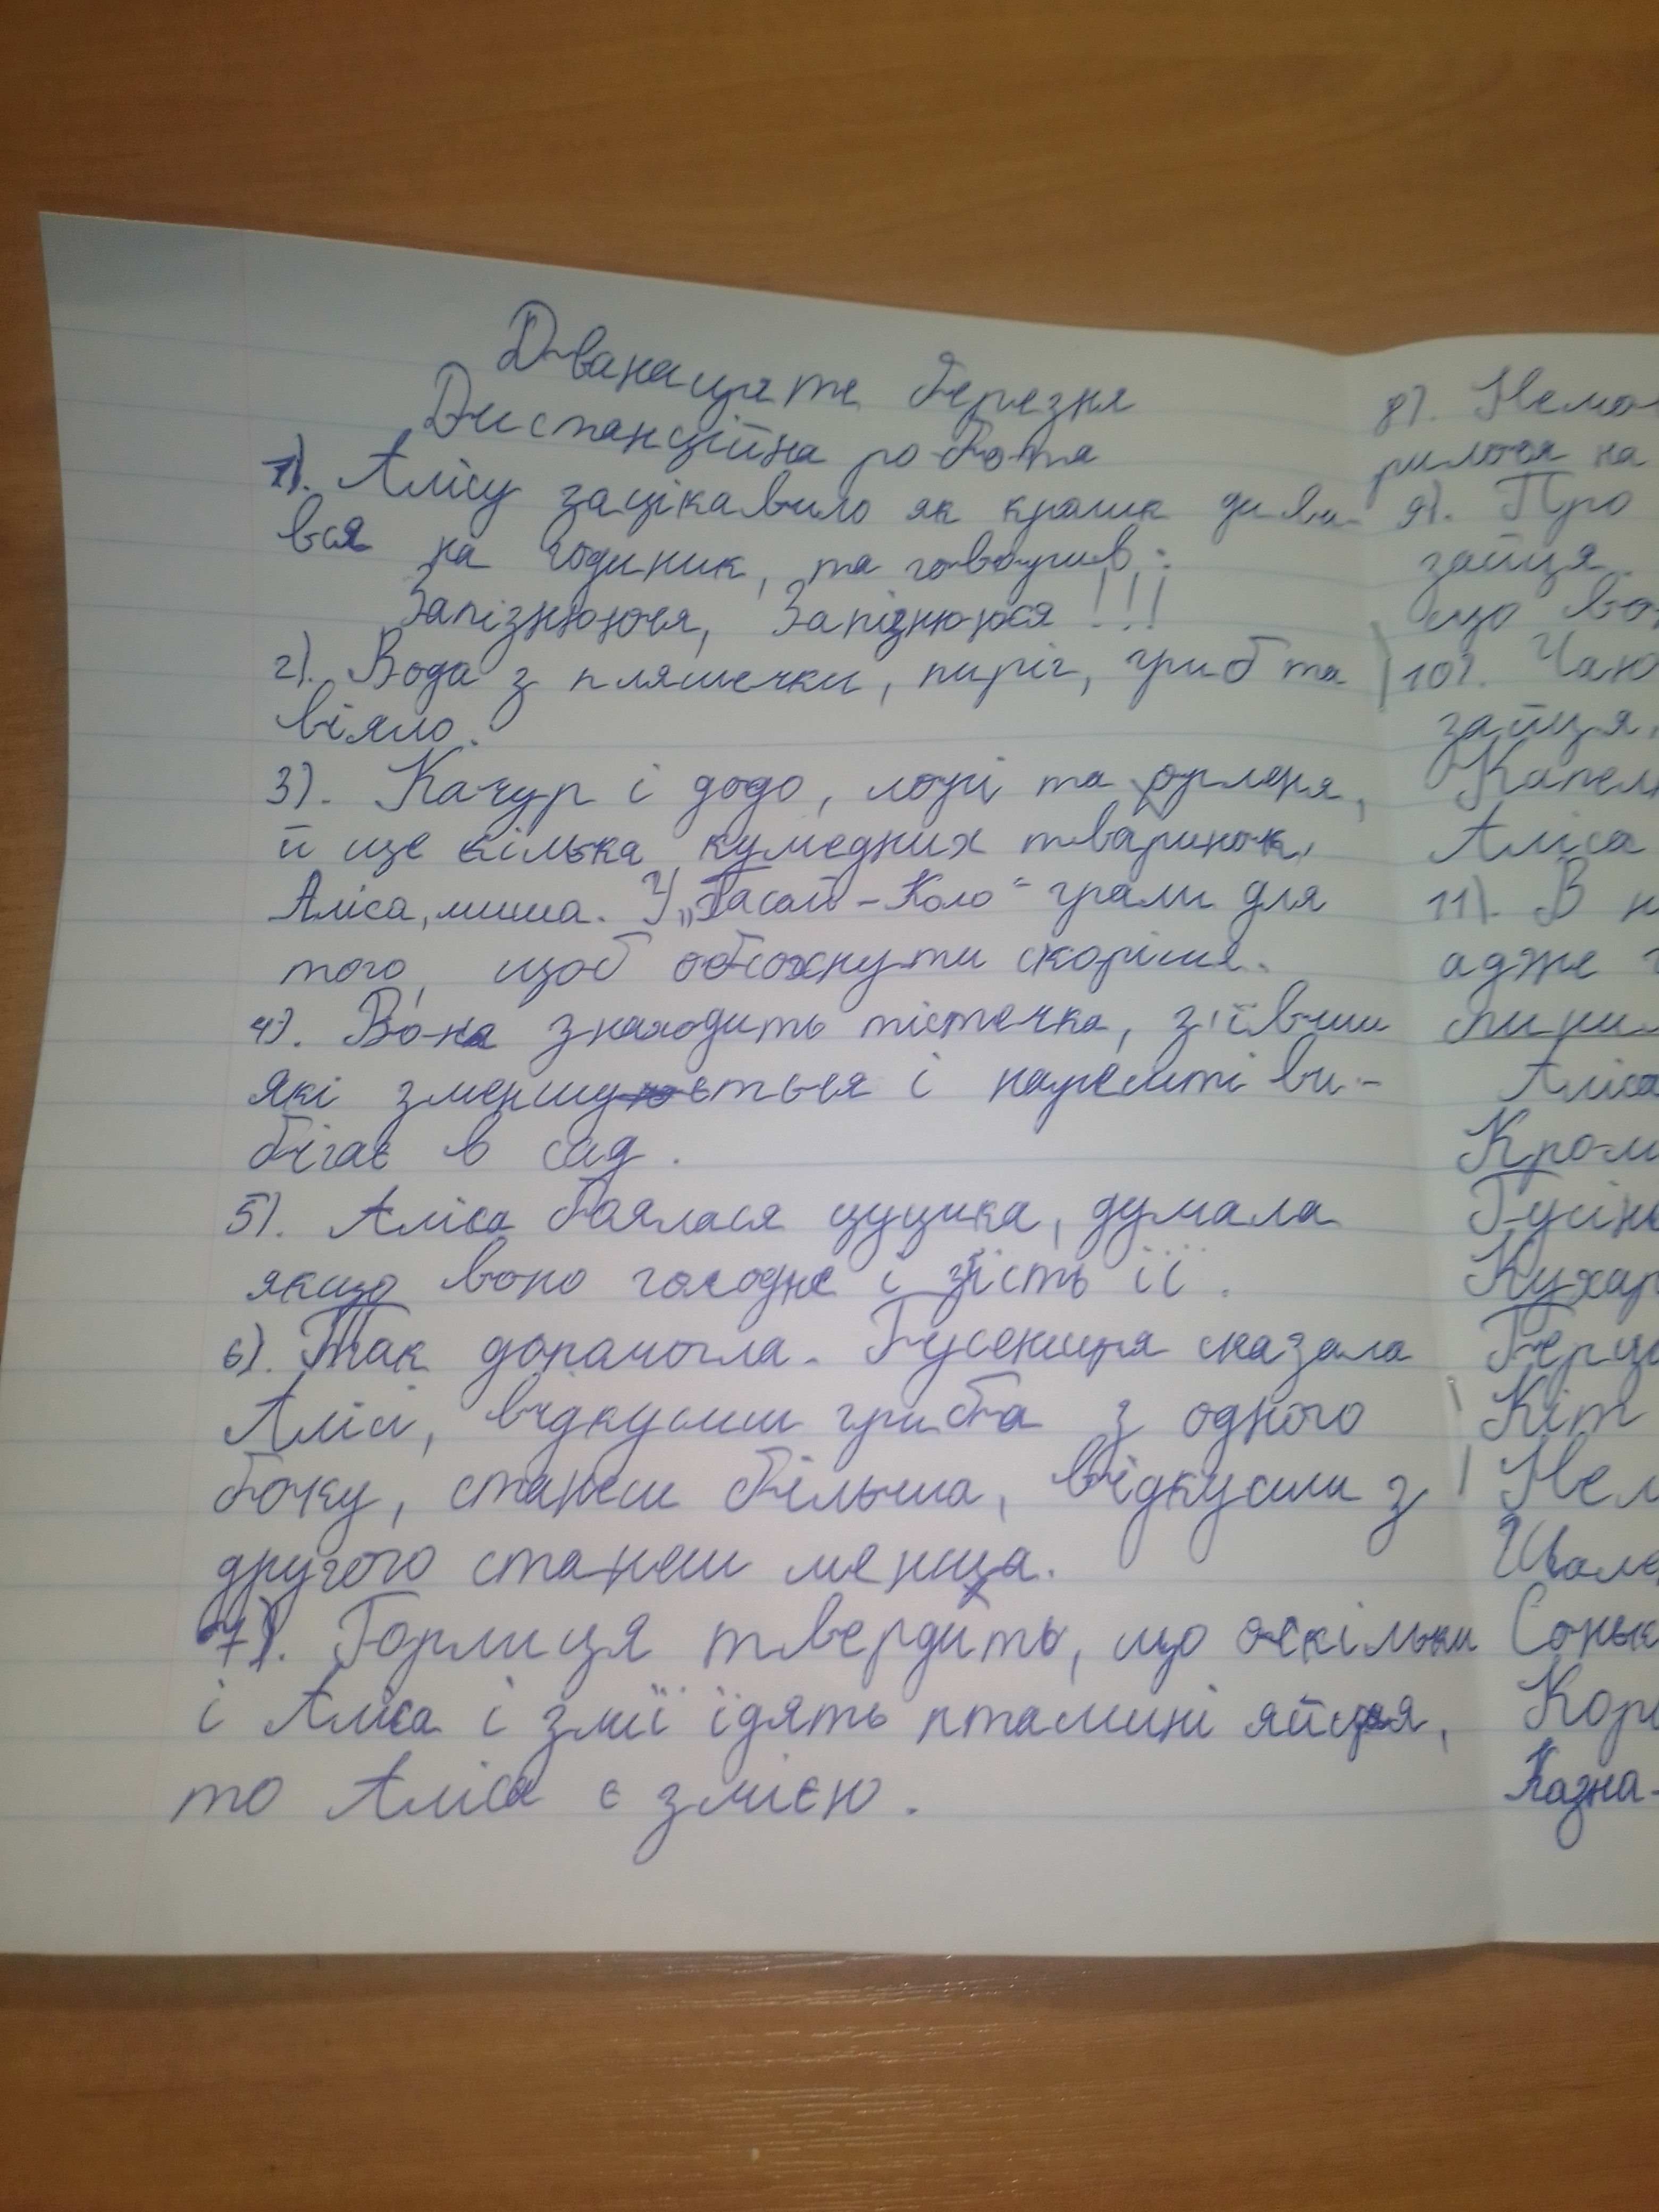 Дванацяте березня
Дистанційна робота
1). Алісу зацікавило як кролик диви-
вся на годиник, та говорив:
Запізнююся, Запізнююся!!!
2). Вода з пляшечки, пиріг, гриб та
віяло.
3). Качур і додо, лорі та орлеря,
й ще кілька кумедних тваринок,
Аліса, миша. У „Гасай-Коло“ грали для
того, щоб обсохнути скоріше.
4). Вона знаходить тістечка, з'ївши
які зменшується і нарешті ви-
бігає в сад.
5). Аліса боялася цуцика, думала
якщо воно голодне і з'їсть її.
6). Так допомогла. Гусениця сказала
Алісі, відкусиш гриба з одного
боку, станеш більша, відкусиш з
другого станеш менша.
7). Горлиця твердить, що оскільки
і Аліса і змії їдять пташині яйця,
то Аліса є змією.
8). Немо
рилося на
9). Про
зайця
що во
10). Чаю
зайця,
Капел
Аліса
11). В
адже
Аліса
Крол
Гусін
Кухар
Герцо
Кіт
Нем
Швале
Соньк
Кор
Казна-